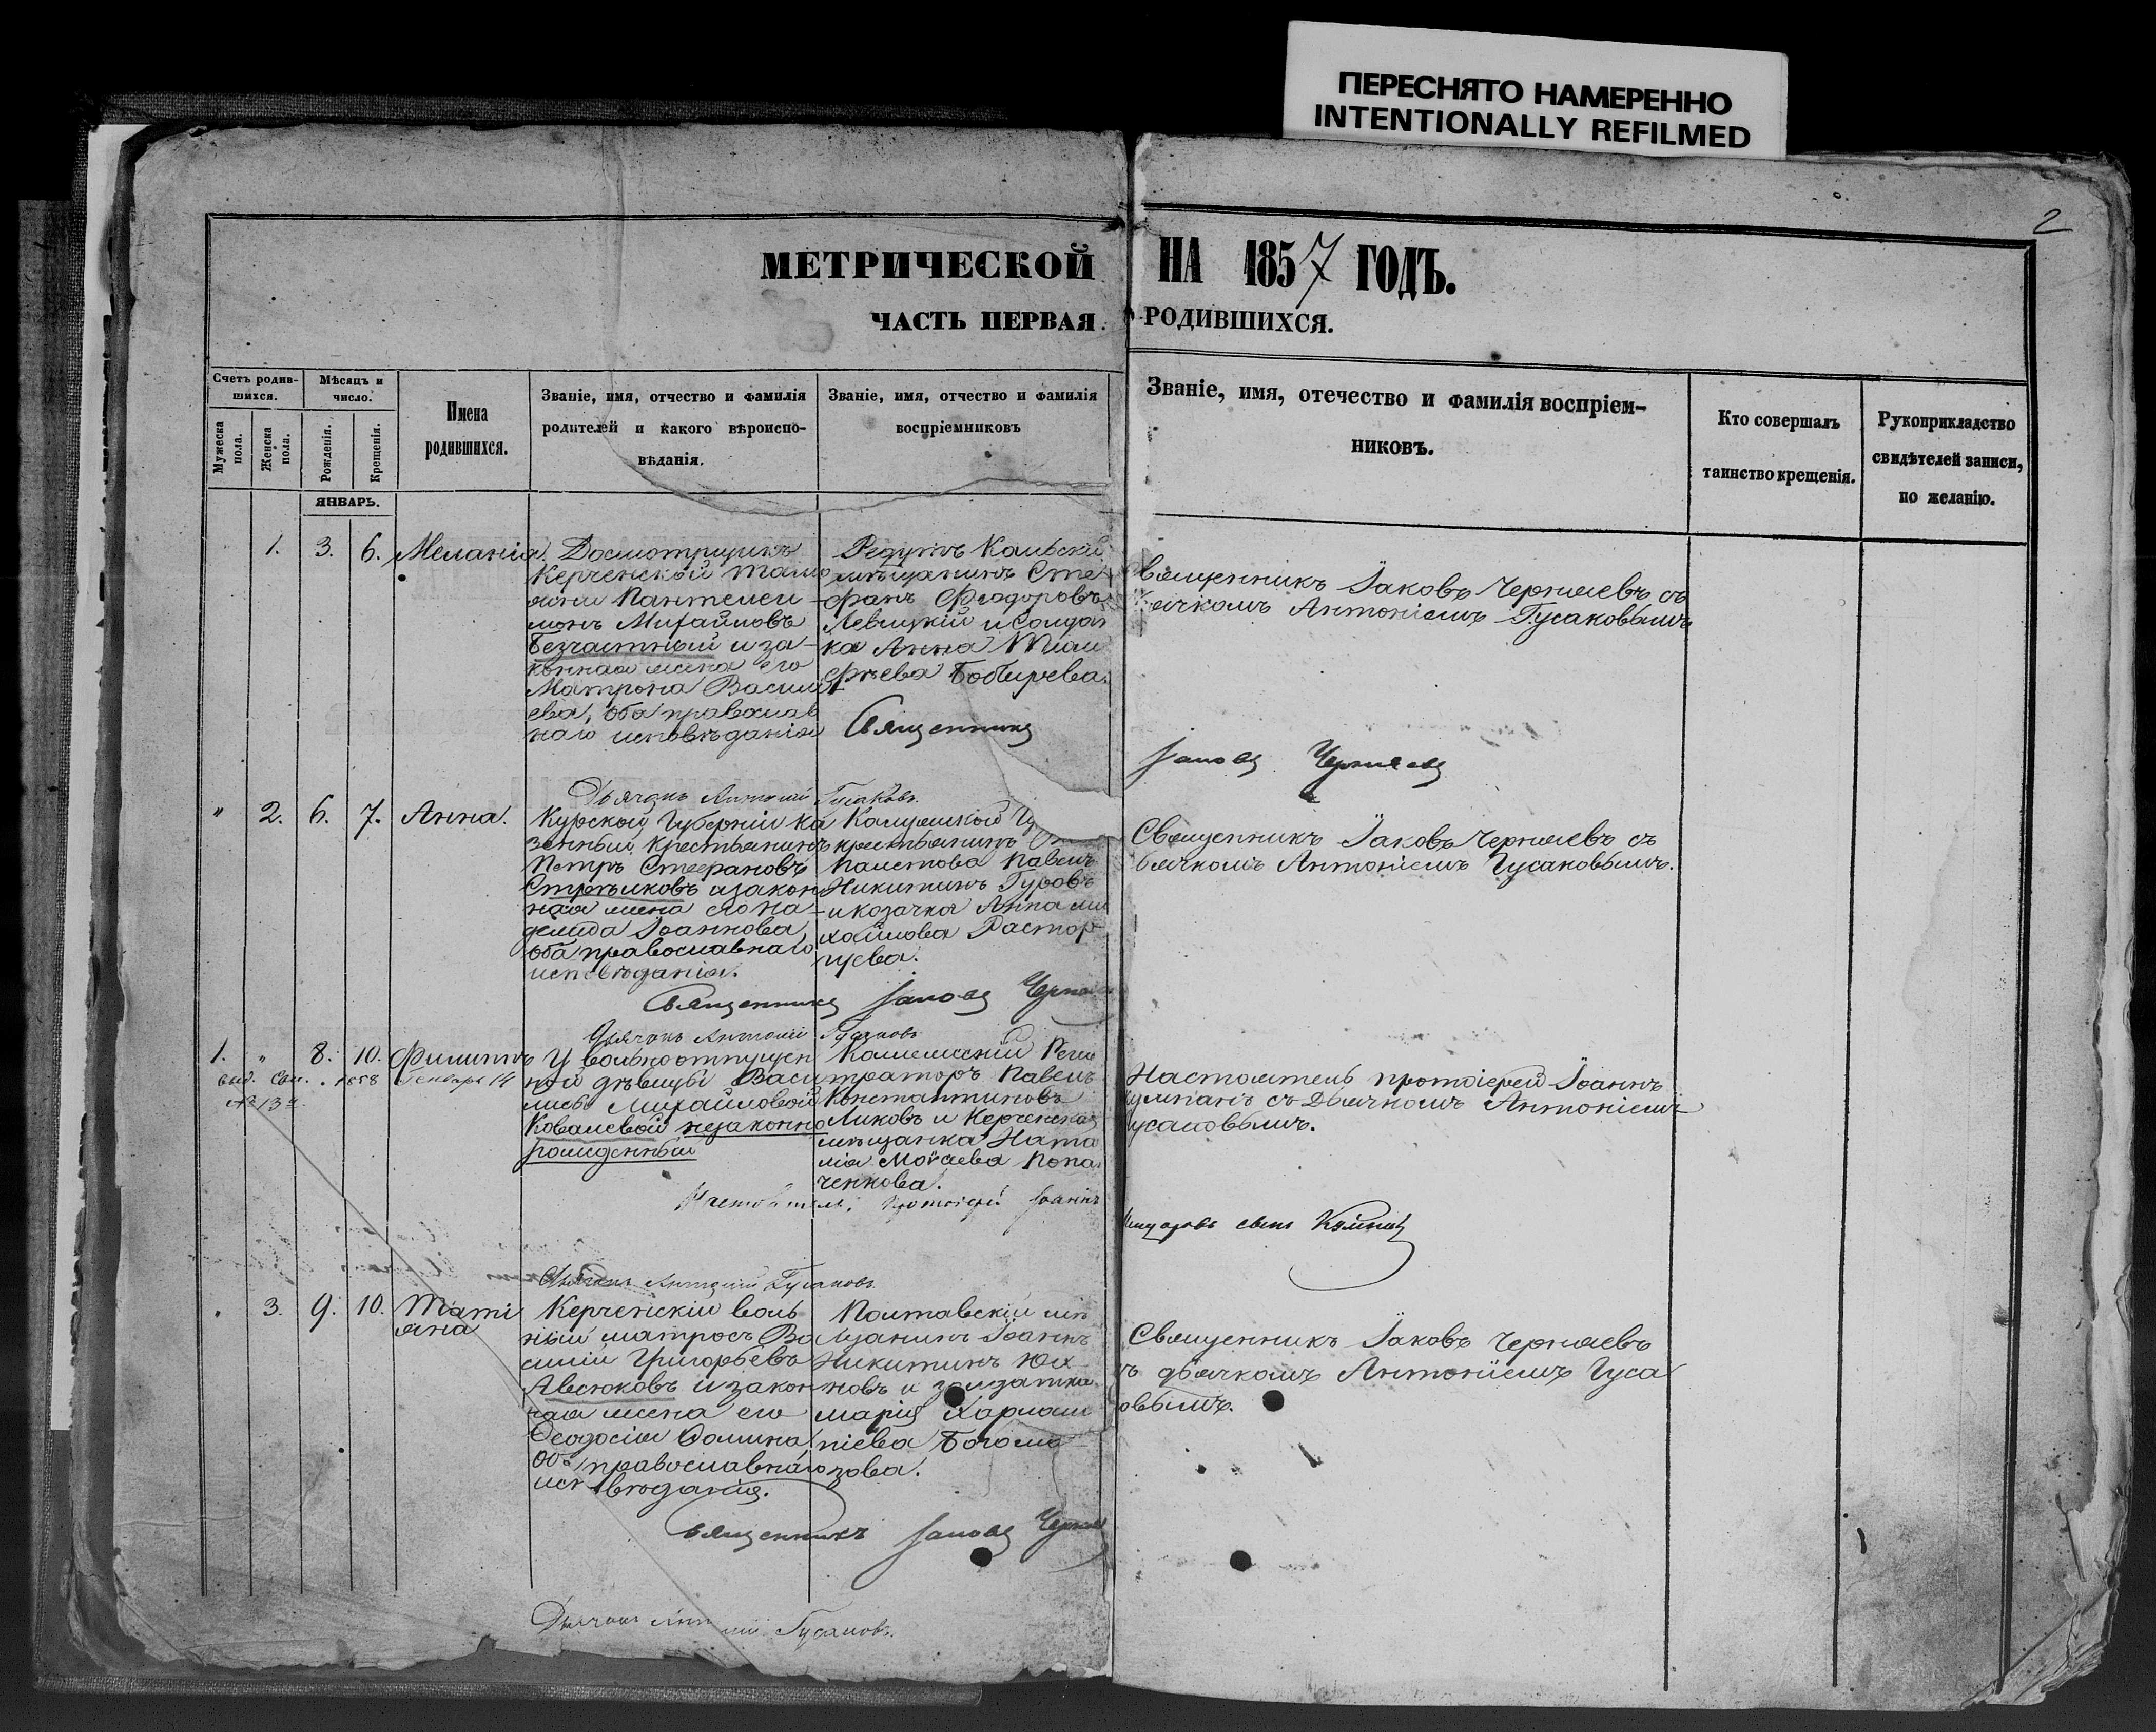 ПЕРЕСНЯТО НАМЕРЕННО
INTENTIONALLY REFILMED
2
МЕТРИЧЕСКОЙ
НА 1857 ГОДЪ.
ЧАСТЬ ПЕРВАЯ.
РОДИВШИХСЯ.
Счетъ родив-
шихся.
Мужеска
пола.
Женска
пола.
Мѣсяцъ и
число.
Рожденія.
Крещенія.
Имена
родившихся.
Званіе, имя, отчество и фамилія
родителей и какого вѣроиспо-
вѣданія.
Званіе, имя, отчество и фамилія
воспріемниковъ
Званіе, имя, отечество и фамилія воспріем-
никовъ.
Кто совершалъ
таинство крещенія.
Рукоприкладство
свидѣтелей записи,
по желанію.
ЯНВАРЬ.
1. 3. 6. Меланія.
Досмотрщикъ
Керченской тамо
жни Пантелеи-
монъ Михайловъ
Безчастный и за-
конная жена его
Матрона Васил
ева, оба православ
наго исповѣданія
Редутъ Кальскій
мѣщанинъ Сте
фанъ Феодоровъ
Левицкій и Солдат
ка Анна
Бобырева.
Священникъ
вященникъ Іаковъ Черняевъ съ
ячкомъ Антоніемъ Гусаковымъ
Іаковъ Черняевъ
Дьячокъ Антоній Гусаковъ.
" 2. 6. 7. Анна.
Курской Губерніи ка
зенный крестьянинъ
Петръ Стефановъ
Стрѣлковъ и закон
ная жена его На-
делида Іоаннова,
оба православнаго
исповѣданія.
Калужской Гу
крестьянинъ
Павелъ
Никитинъ Гуровъ
и козачка Анна Ми
хайлова Растор-
гуева.
Священникъ Іаковъ Черняевъ съ
ьячкомъ Антоніемъ Гусаковымъ.
Священникъ Іаковъ Черня
Дьячокъ Антоній Гусаковъ
1. " 8. 10. Филиппъ
выд. Свид. 1858 Генваря 14
№ 13й.
У вольноотпущен
ной дѣвицы Васи
лисы Михайловой
Ковалевой незаконно
рожденный
Коллежскій Реги
траторъ Павелъ
Константиновъ
Лыковъ и Керченская
мѣщанка Ната
лія Моѵсеева Попа
ченкова.
Настоятель протоіерей Іоаннъ
умпанъ съ Дьячкомъ Антоніемъ
усаковымъ.
Настоятель, Протоіерей Іоаннъ
Дьячокъ Антоній Гусаковъ
" 3. 9. 10. Таті
яна
Керченскій воль
ный матросъ Ва
силій Григорьевъ
Авсюковъ и закон
ная жена его
Ѳеодосія Ѳомина
оба православнаго
исповѣданія.
Полтавскій мѣ
щанинъ Іоаннъ
Никитинъ Юх
новъ и солдатка
Марія Харлам
піева Богома
зова.
Священникъ Іаковъ Черняевъ
съ дьячкомъ Антоніемъ Гуса
овымъ.
Священникъ Іаковъ Черня
Дьячокъ Антоній Гусаковъ.